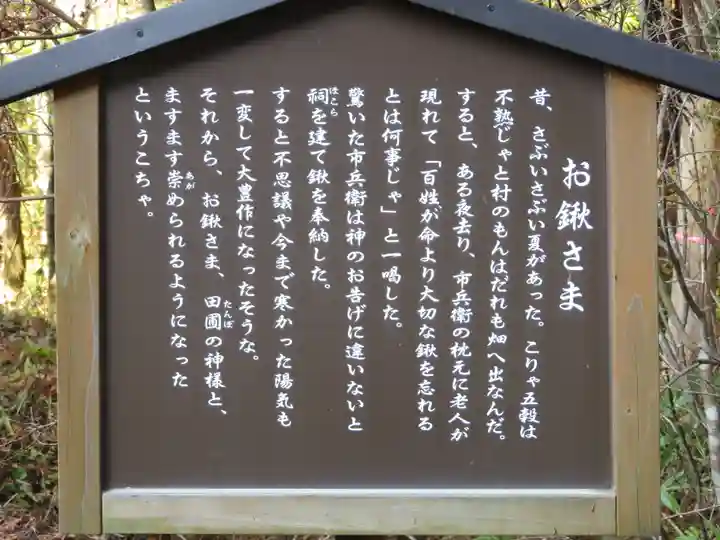 お鍬さま
昔、さぶいさぶい夏があった。こりゃ五穀は
不熟じゃと村のもんはだれも畑へ出なんだ。
すると、ある夜去り、市兵衛の枕元に老人が
現れて「百姓が命より大切な鍬を忘れる
とは何事じゃ」と一喝した。
驚いた市兵衛は神のお告げに違いないと
祠を建て鍬を奉納した。
すると不思議や今まで寒かった陽気も
一変して大豊作になったそうな。
それから、お鍬さま、田圃の神様と、
ますます崇められるようになった
というこちゃ。